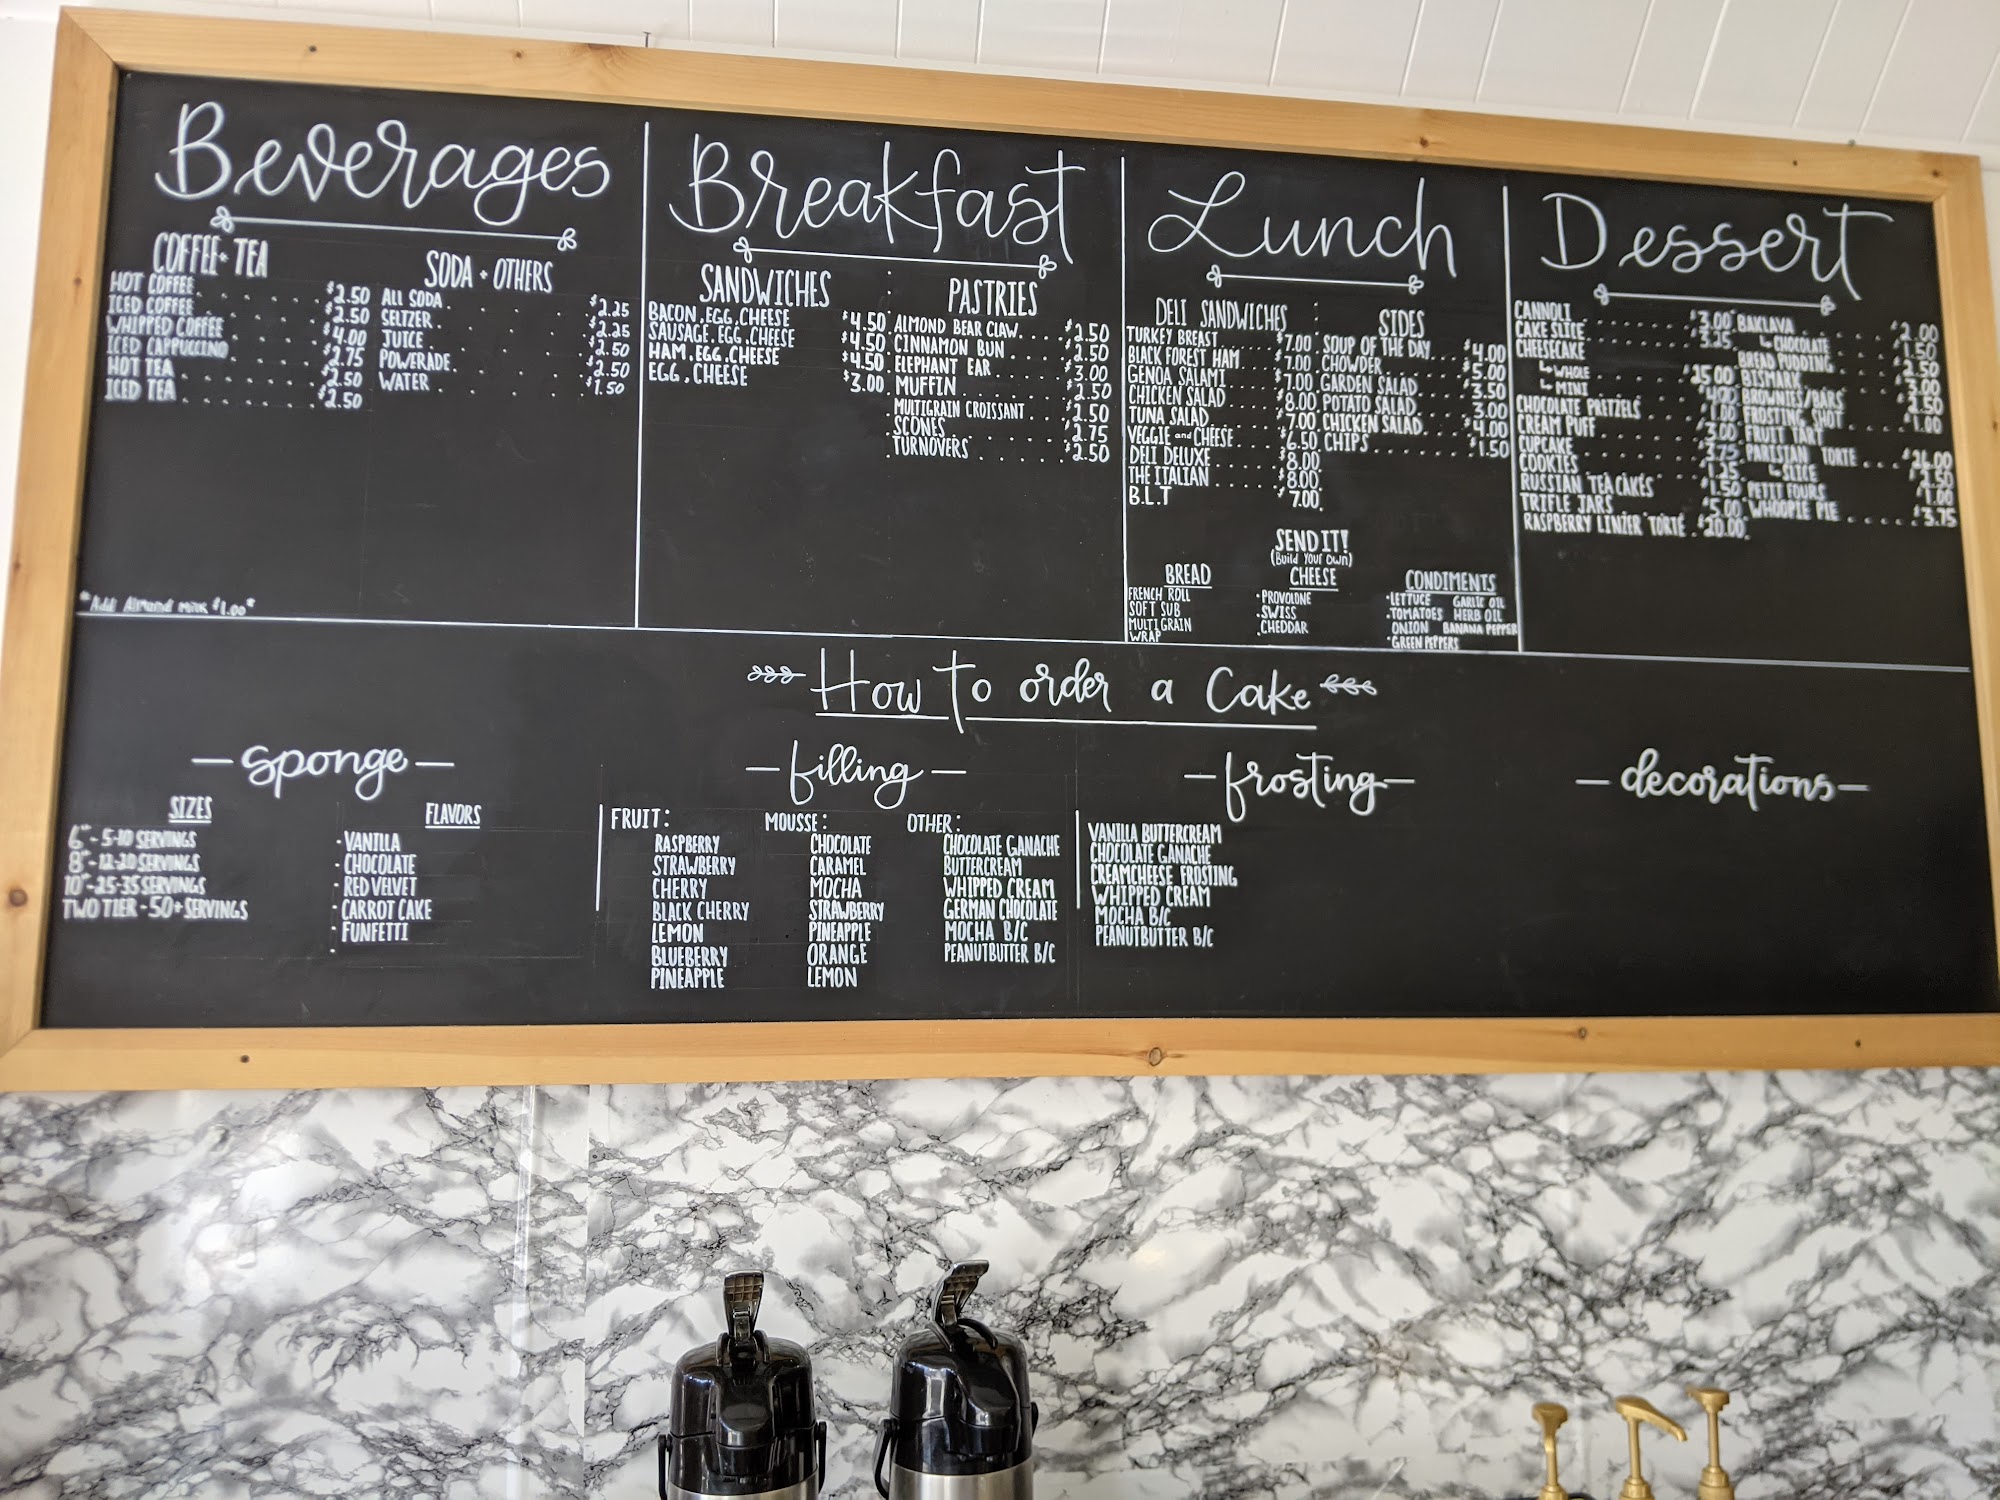 Beverages
COFFEE + TEA
HOT COFFEE $2.50
ICED COFFEE $2.50
WHIPPED COFFEE $4.00
ICED CAPPUCCINO $2.75
HOT TEA $2.50
ICED TEA $2.50
SODA + OTHERS
ALL SODA $2.25
SELTZER $2.25
JUICE $2.50
POWERADE $2.50
WATER $1.50
*Add Almond milk $1.00*
Breakfast
SANDWICHES
BACON, EGG, CHEESE $4.50
SAUSAGE, EGG, CHEESE $4.50
HAM, EGG, CHEESE $4.50
EGG, CHEESE $3.00
PASTRIES
ALMOND BEAR CLAW $2.50
CINNAMON BUN $2.50
ELEPHANT EAR $3.00
MUFFIN $2.50
MULTIGRAIN CROISSANT $2.50
SCONES $2.75
TURNOVERS $2.50
Lunch
DELI SANDWICHES
TURKEY BREAST $7.00
BLACK FOREST HAM $7.00
GENOA SALAMI $7.00
CHICKEN SALAD $8.00
TUNA SALAD $7.00
VEGGIE and CHEESE $6.50
DELI DELUXE $8.00
THE ITALIAN $8.00
B.L.T $7.00
SIDES
SOUP OF THE DAY $4.00
CHOWDER $5.00
GARDEN SALAD $3.50
POTATO SALAD $3.00
CHICKEN SALAD $4.00
CHIPS $1.50
SEND IT!
(Build Your Own)
BREAD
FRENCH ROLL
SOFT SUB
MULTIGRAIN
WRAP
CHEESE
· PROVOLONE
· SWISS
· CHEDDAR
CONDIMENTS
· LETTUCE GARLIC OIL
· TOMATOES HERB OIL
ONION BANANA PEPPER
· GREEN PEPPERS
Dessert
CANNOLI $3.00
CAKE SLICE $3.25
CHEESECAKE
↳ WHOLE $25.00
↳ MINI $4.00
CHOCOLATE PRETZELS $1.00
CREAM PUFF $3.00
CUPCAKE $3.75
COOKIES $1.25
RUSSIAN TEA CAKES $1.50
TRIFLE JARS $5.00
RASPBERRY LINZER TORTE $20.00
BAKLAVA $2.00
↳ CHOCOLATE $1.50
BREAD PUDDING $2.50
BISMARK $3.00
BROWNIES/BARS $2.50
FROSTING SHOT $1.00
FRUIT TART
PARISIAN TORTE $26.00
↳ SLICE $3.50
PETIT FOURS $1.00
WHOOPIE PIE $3.75
How to order a Cake
- sponge -
SIZES
6" - 5-10 SERVINGS
8" - 12-20 SERVINGS
10" - 25-35 SERVINGS
TWO TIER - 50+ SERVINGS
FLAVORS
· VANILLA
· CHOCOLATE
· RED VELVET
· CARROT CAKE
· FUNFETTI
- filling -
FRUIT:
RASPBERRY
STRAWBERRY
CHERRY
BLACK CHERRY
LEMON
BLUEBERRY
PINEAPPLE
MOUSSE:
CHOCOLATE
CARAMEL
MOCHA
STRAWBERRY
PINEAPPLE
ORANGE
LEMON
OTHER:
CHOCOLATE GANACHE
BUTTERCREAM
WHIPPED CREAM
GERMAN CHOCOLATE
MOCHA B/C
PEANUTBUTTER B/C
- frosting -
VANILLA BUTTERCREAM
CHOCOLATE GANACHE
CREAMCHEESE FROSTING
WHIPPED CREAM
MOCHA B/C
PEANUTBUTTER B/C
- decorations -